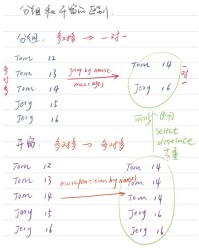 分组和开窗的区别
分组: 多对多 → 一对一
Tom 12
Tom 13 group by name Tom 14
Tom 14 max(age) Jerg 16
Jerg 15
Jerg 16
多对多
一对一
select
distince
去重
开窗 多对多 → 多对多
Tom 12 Tom 14
Tom 13 Tom 14
Tom 14 Tom 14
Jerg 15 Jerg 16
Jerg 16 Jerg 16